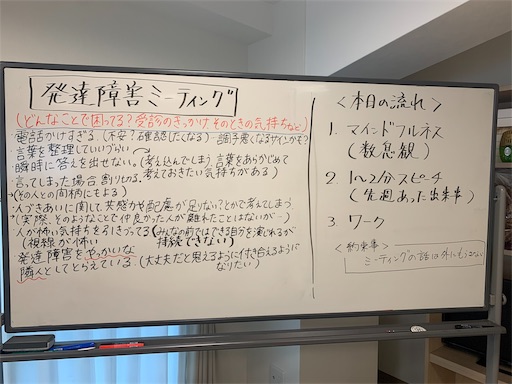 発達障害ミーティング
(どんなことで困ってる?受診のきっかけ そのときの気持ちなど)
・電話かけすぎる(不安?確認したくなる)→調子悪くなるサインかも?
言葉を整理していいづらい
・瞬時に答えを出せない。(考え込んでしまう 言葉をあらかじめ
言ってしまった場合、割り切る、考えておきたい気持ちがある)
→(その人との関柄にもよる)
・人づきあいに関して共感力や配慮が足りない?とかで考えてしまう
(実際、そのようなことで仲良かった人が離れたことはないが…)
・人が怖い気持ちを引きずってる(みんなの前ではできる自分を演じれるが
(視線が怖い 持続できない)
発達障害をやっかいな
隣人としてとらえている。(大丈夫だと思えるように付き合えるように
なりたい)
<本日の流れ>
1. マインドフルネス
(数息観)
2. 1〜2分スピーチ
(先週あった出来事)
3. ワーク
<約束事>
ミーティングの話は外にもらさない